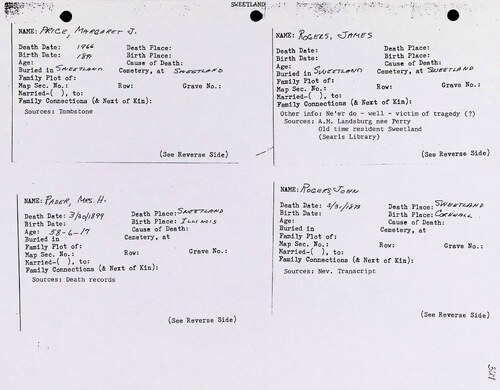 SWEETLAND
NAME: PRICE, MARGARET J.
Death Date: 1966 Death Place:
Birth Date: Birth Place:
Age: Cause of Death:
Buried in SWEETLAND Cemetery, at SWEETLAND
Family Plot of:
Map Sec. No.: Row: Grave No.:
Married-( ), to:
Family Connections (& Next of Kin):
Sources: Tombstone
(See Reverse Side)
NAME: ROGERS, JAMES
Death Date: Death Place:
Birth Date: Birth Place:
Age: Cause of Death:
Buried in SWEETLAND Cemetery, at SWEETLAND
Family Plot of:
Map Sec. No.: Row: Grave No.:
Married-( ), to:
Family Connections (& Next of Kin):
Other info: Ne'er do - well - victim of tragedy (?)
Sources: A.M. Landsburg nee Perry
Old time resident Sweetland
(Searls Library)
(See Reverse Side)
NAME: RADER, MRS. H.
Death Date: 3/30/1899 Death Place: SWEETLAND
Birth Date: Birth Place: ILLINOIS
Age: 58-6-17 Cause of Death:
Buried in Cemetery, at
Family Plot of:
Map Sec. No.: Row: Grave No.:
Married-( ), to:
Family Connections (& Next of Kin):
Sources: Death records
(See Reverse Side)
NAME: ROGERS, JOHN
Death Date: Death Place: SWEETLAND
Birth Date: Birth Place: CORNWALL
Age: Cause of Death:
Buried in Cemetery, at
Family Plot of:
Map Sec. No.: Row: Grave No.:
Married-( ), to:
Family Connections (& Next of Kin):
Sources: Nev. Transcript
(See Reverse Side)